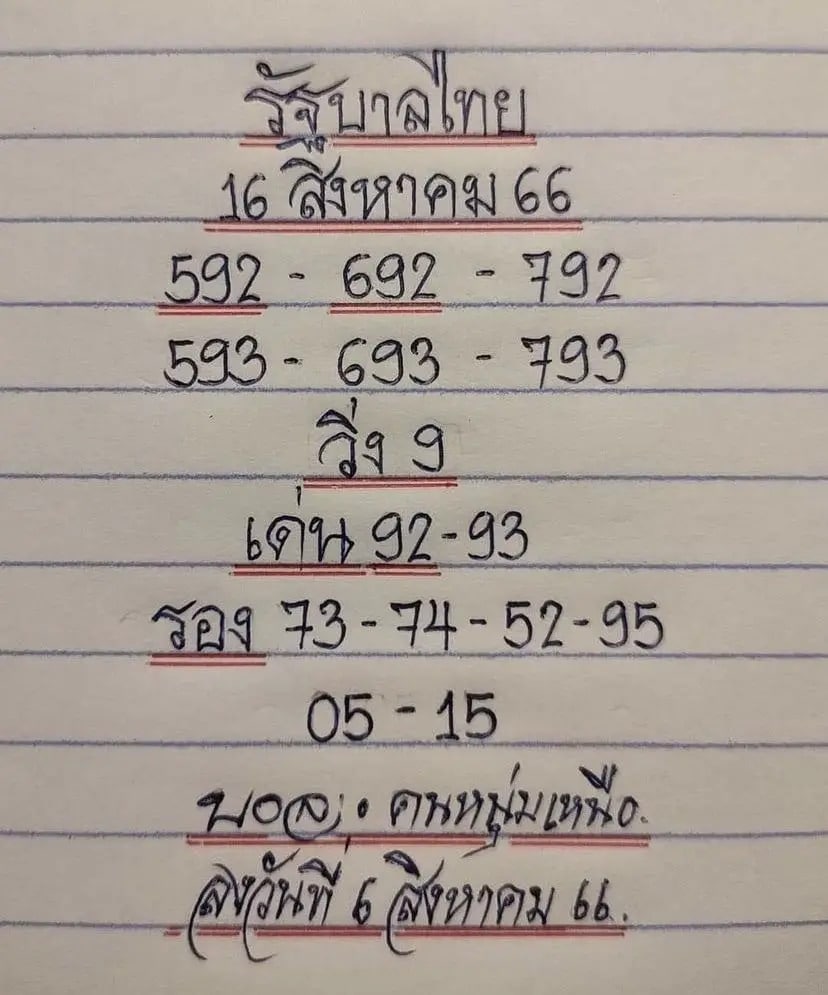 รัฐบาลไทย
16 สิงหาคม 66
592 - 692 - 792
593 - 693 - 793
วิ่ง 9
เด่น 92-93
รอง 73-74-52-95
05-15
บอล: คนหนุ่มเหนือ.
ลงวันที่ 6 สิงหาคม 66.